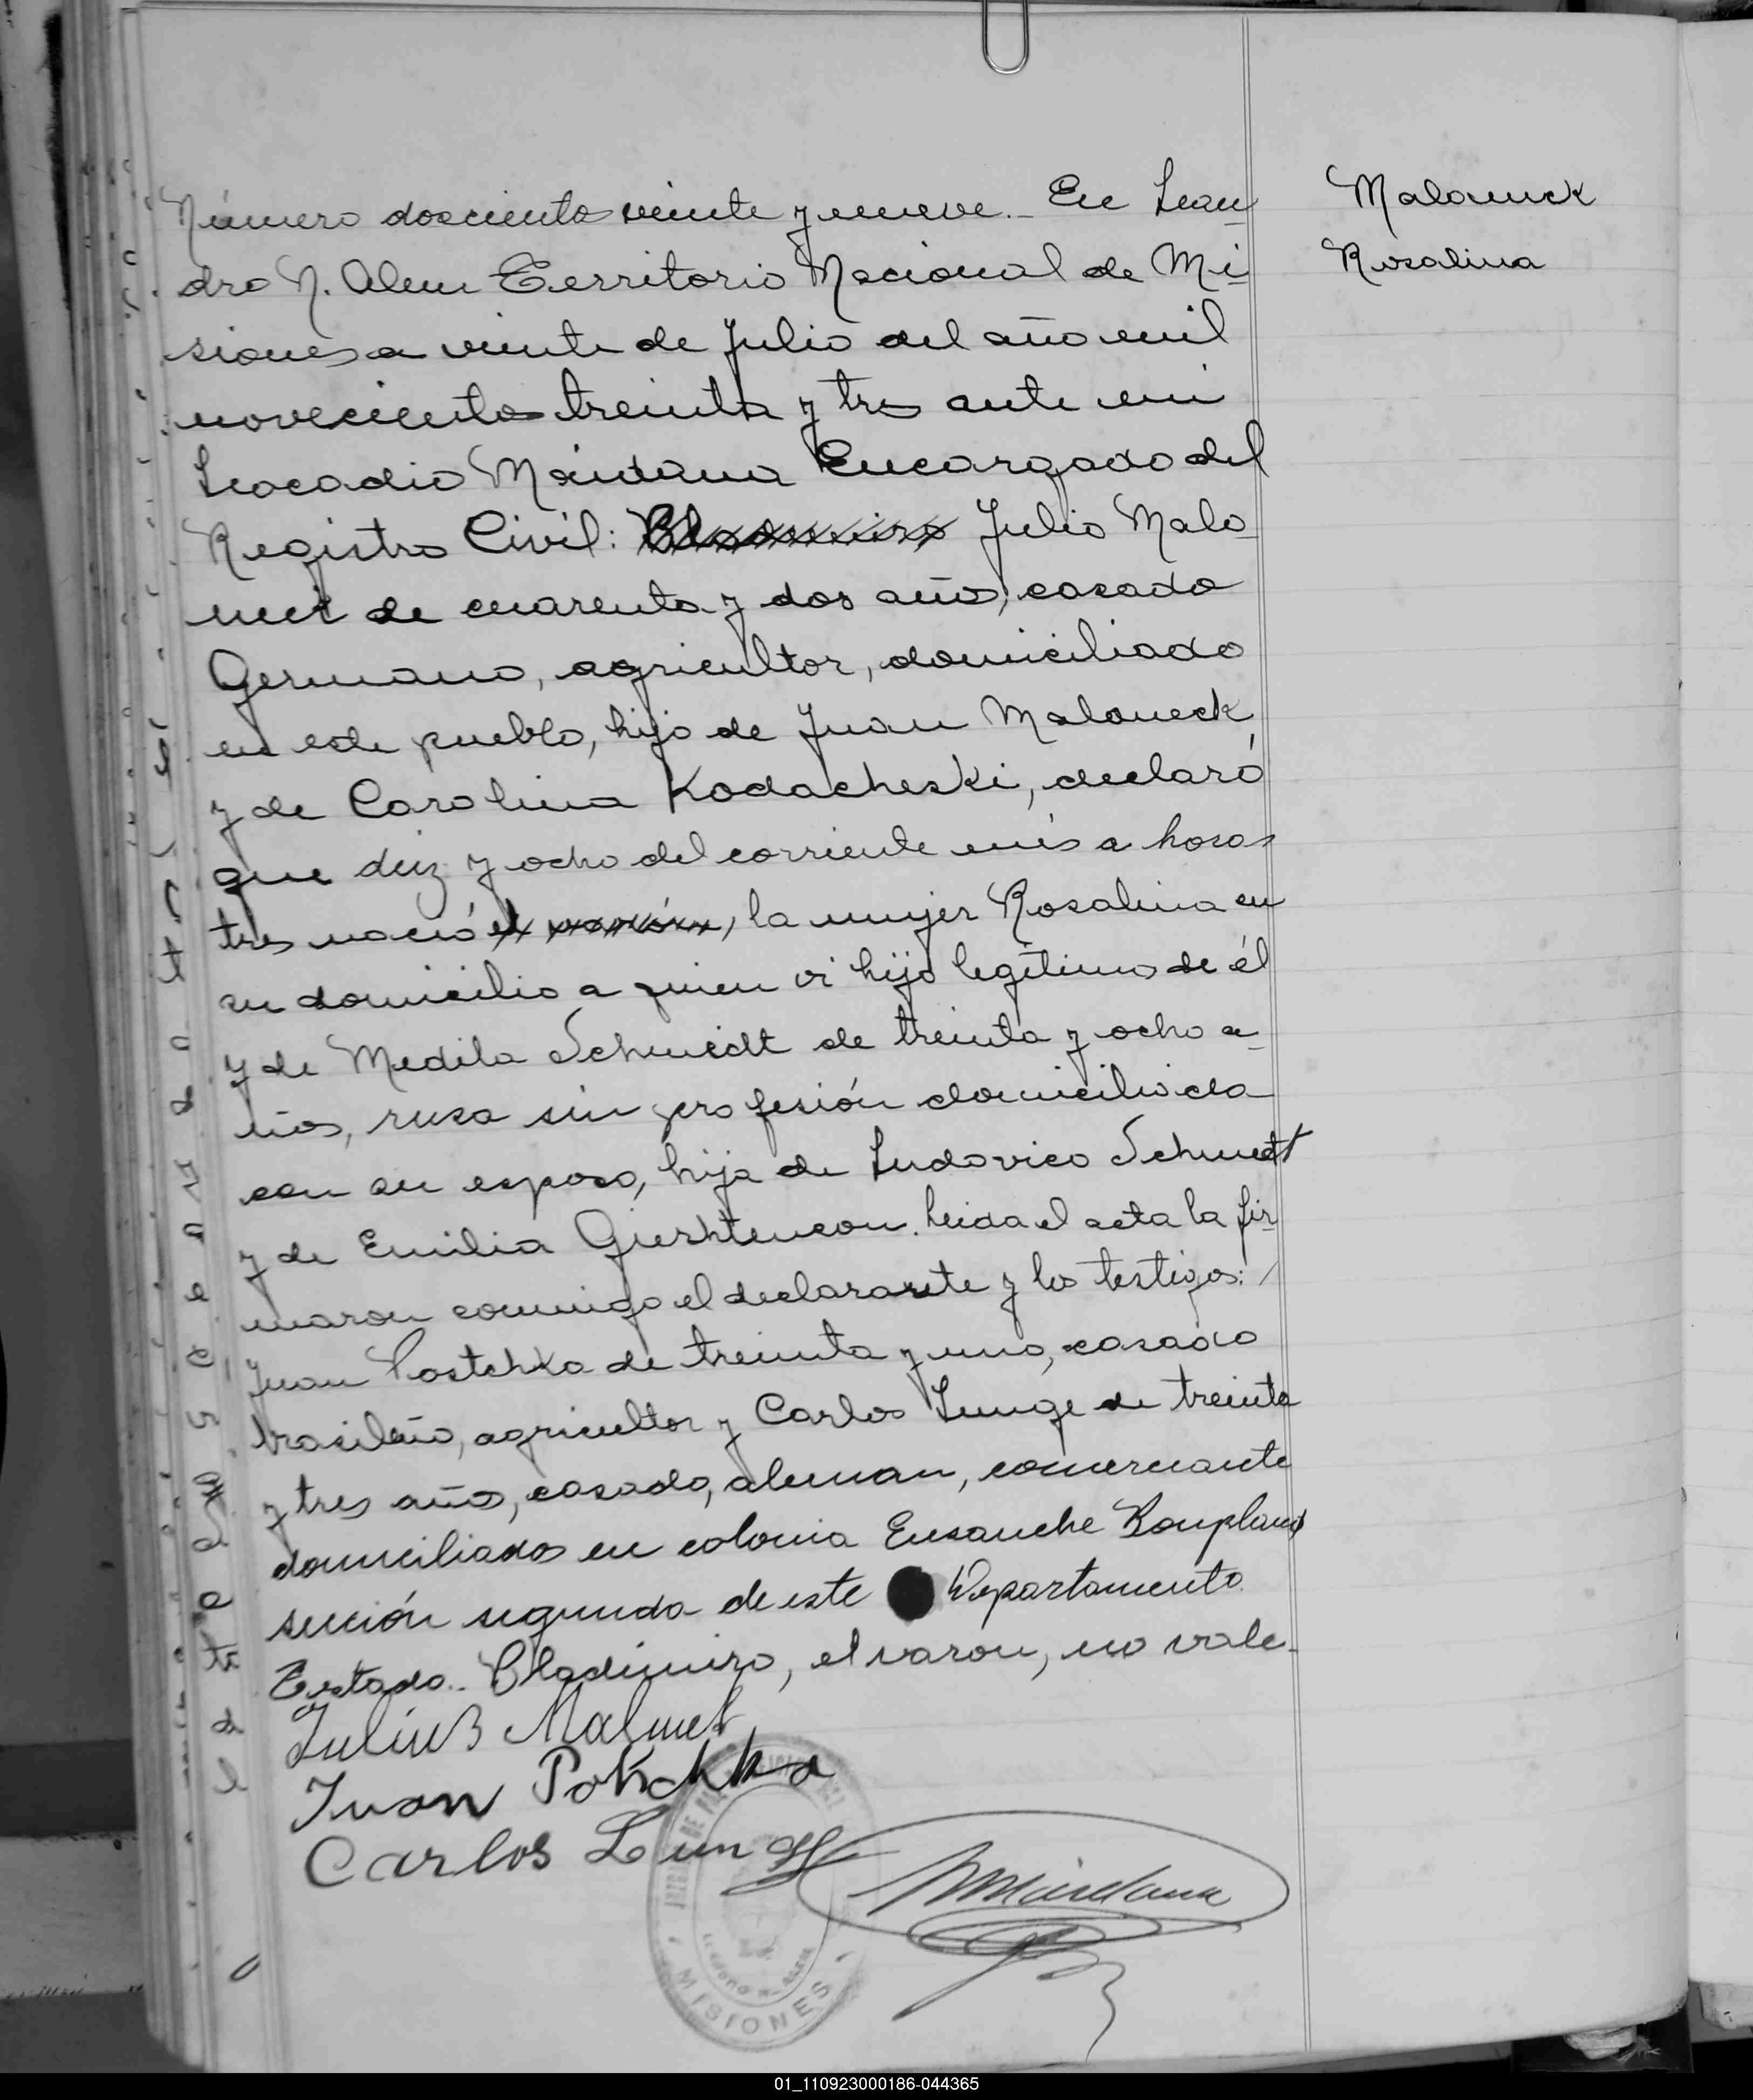 Número doscientos veinte y nueve.- En Lean
Malounek
dro N. Alem Territorio Nacional de Mi
Rosalina
siones a veinte de Julio del año mil
novecientos treinta y tres ante mi
Leocadio Máidana Encargado del
Registro Civil: Bladimiro Julio Malo
nek de cuarenta y dos años, casado
Germano, agricultor, domiciliado
en este pueblo, hijo de Juan Maloneck,
y de Carolina Kodacheski, declaró
que diez y ocho del corriente mes a horas
tres nació el varón, la mujer Rosalina en
su domicilio a quien vi hijo legítimo de él
y de Medila Schmidt de treinta y ocho a
ños, rusa sin profesión domiciliada
con su esposo, hija de Ludovico Schmidt
y de Emilia . Leida el acta la fir
maron conmigo el declarante y los testigos:
Juan Postchka de treinta y uno, casado
brasileño, agricultor y Carlos Lunge de treinta
y tres años, casado, aleman, comerciante
domiciliados en colonia Ensanche Bonpland
sección segunda de este Departamento
Testado.- Bladimiro, el varon, no vale-
Julius Malunet
Juan Potschka
Carlos Lunge
MMáidana
MISIONES
01_110923000186-044365